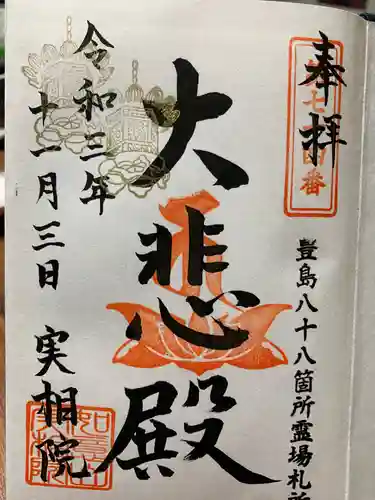 奉拝
豊島八十八箇所霊場札所
大悲殿
令和三年
十一月三日
実相院